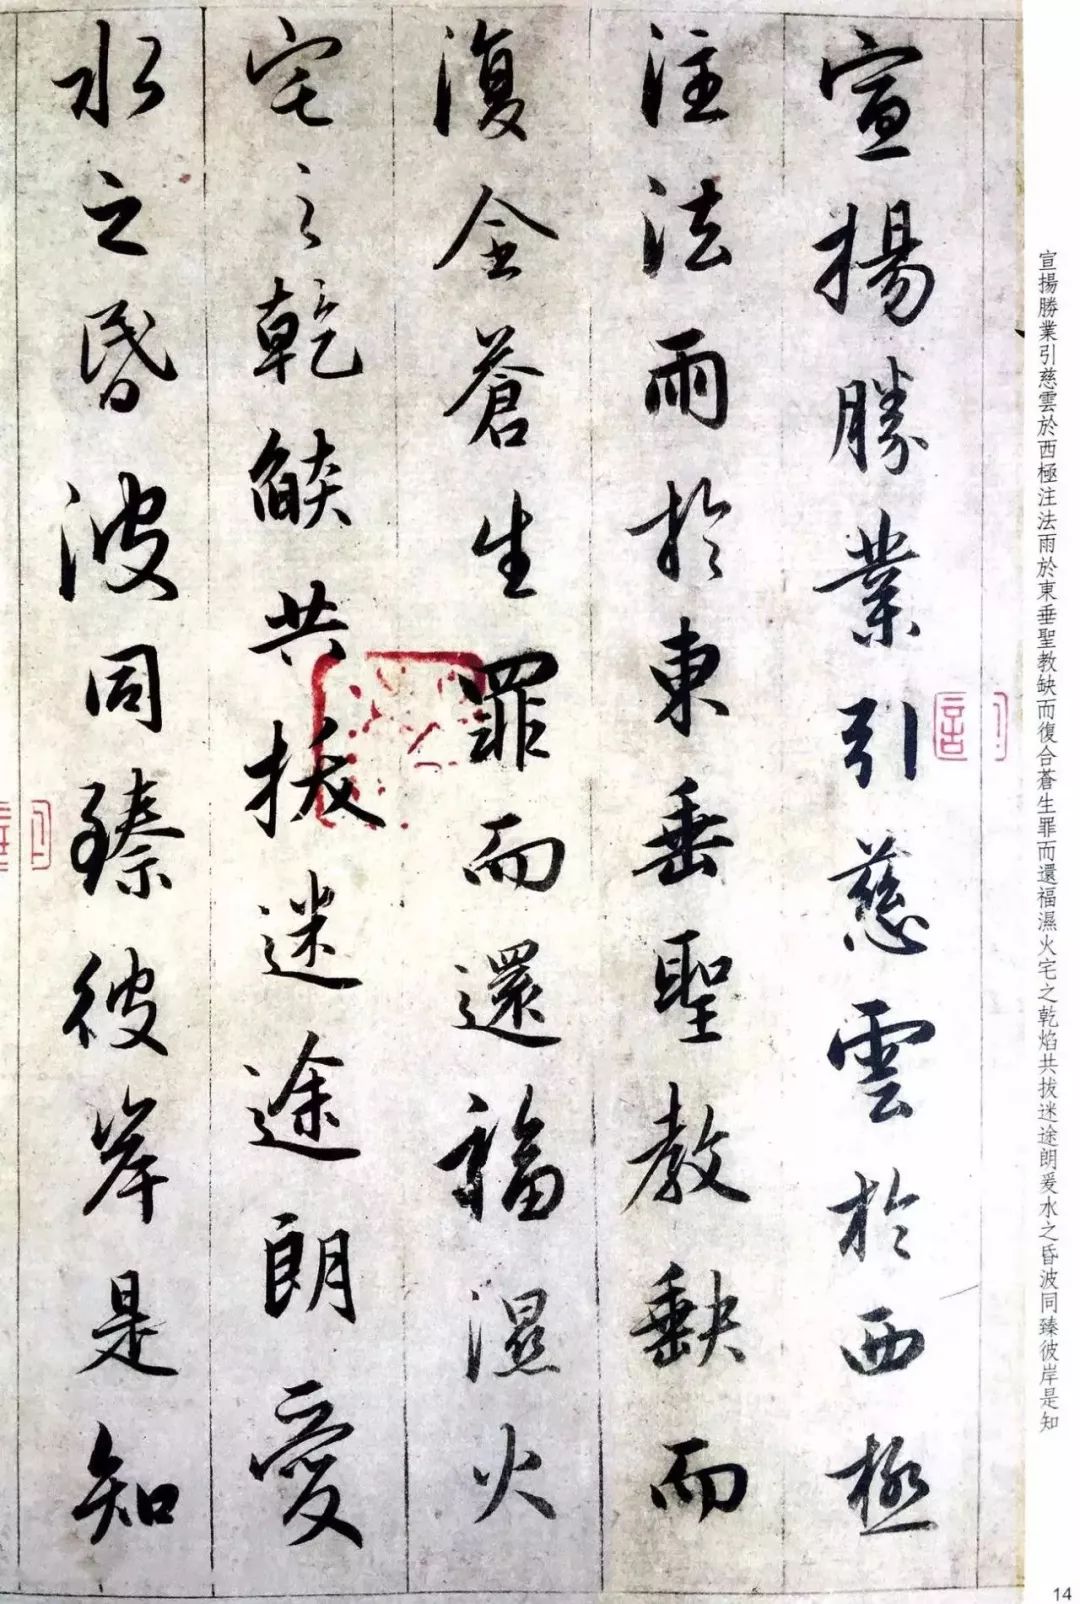 宣揚勝業引慈雲於西極
注法雨於東垂聖教缺而
復全蒼生罪而還福濕火
宅之乾燄共拔迷途朗愛
水之昏波同臻彼岸是知
宣揚勝業引慈雲於西極注法雨於東垂聖教缺而復合蒼生罪而還福濕火宅之乾焰共拔迷途朗爱水之昏波同臻彼岸是知
14